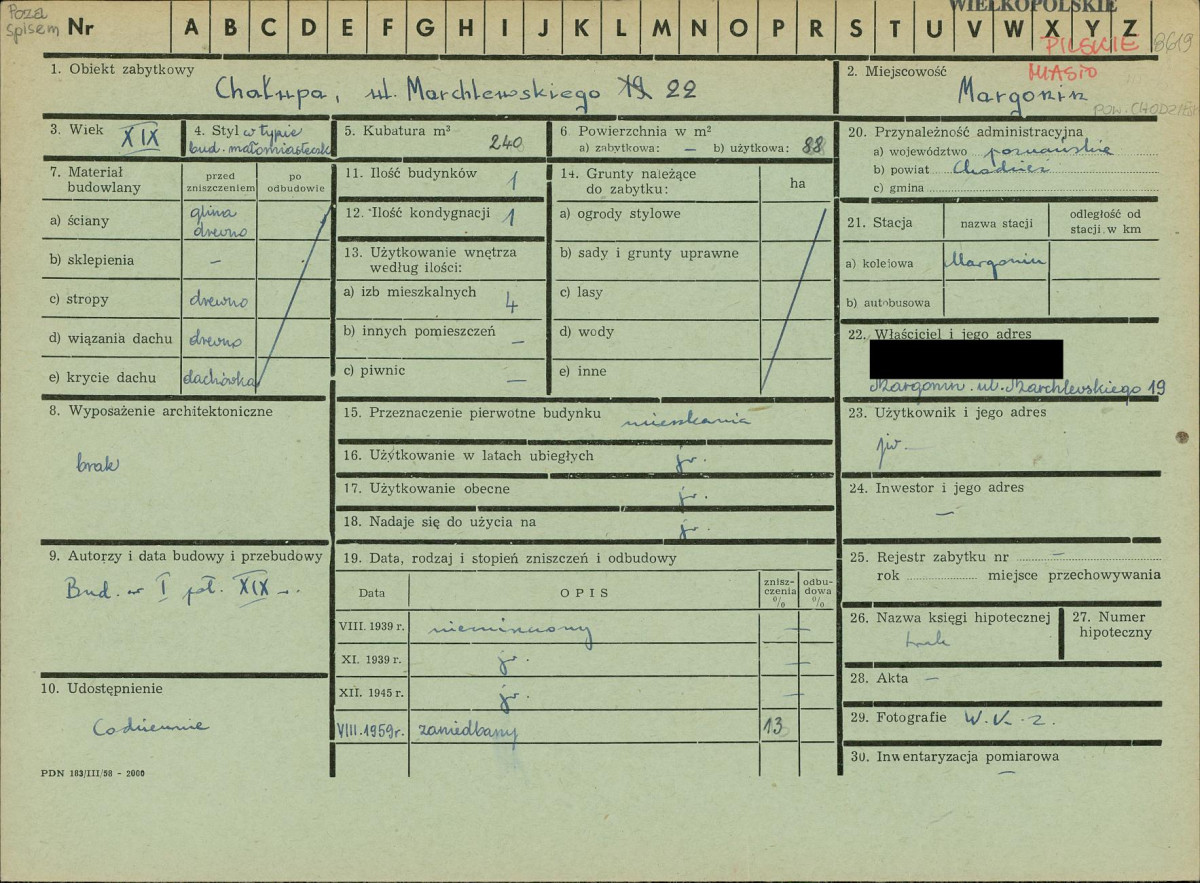 Poza
spisem
Nr A B C D E F G H I J K L M N O P R S T U V W X Y Z
WIELKOPOLSKIE
PILSKIE 8619
MIASTO
1. Obiekt zabytkowy
Chałupa, ul. Marchlewskiego 19 22
2. Miejscowość
Margonin
POW. CHODZIESKI
3. Wiek XIX
4. Styl w typie
bud. małomiasteczk
5. Kubatura m³
240
6 Powierzchnia w m²
a) zabytkowa: — b) użytkowa: 88
7. Materiał
budowlany
przed
zniszczeniem
po
odbudowie
a) ściany glina
drewno
b) sklepienia —
c) stropy drewno
d) wiązania dachu drewno
e) krycie dachu dachówka
8. Wyposażenie architektoniczne
brak
9. Autorzy i data budowy i przebudowy
Bud. w I poł. XIX w.
10. Udostępnienie
Codziennie
PDN 183/III/58 - 2000
11. Ilość budynków 1
12. Ilość kondygnacji 1
13. Użytkowanie wnętrza
według ilości:
a) izb mieszkalnych 4
b) innych pomieszczeń —
c) piwnic —
14. Grunty należące
do zabytku:
ha
a) ogrody stylowe
b) sady i grunty uprawne
c) lasy
d) wody
e) inne
15. Przeznaczenie pierwotne budynku mieszkania
16. Użytkowanie w latach ubiegłych jw.
17. Użytkowanie obecne jw.
18. Nadaje się do użycia na jw.
19. Data, rodzaj i stopień zniszczeń i odbudowy
Data OPIS znisz-
czenia
%
odbu-
dowa
%
VIII. 1939 r. niezniszczony —
XI. 1939 r. jw. —
XII. 1945 r. jw. —
VIII.1959r. zaniedbany 13
20. Przynależność administracyjna
a) województwo poznańskie
b) powiat Chodzież
c) gmina
21. Stacja nazwa stacji odległość od
stacji w km
a) kolejowa Margonin
b) autobusowa
22. Właściciel i jego adres
Margonin. ul. Marchlewskiego 19
23. Użytkownik i jego adres
jw.
24. Inwestor i jego adres
—
25. Rejestr zabytku nr —
rok miejsce przechowywania
26. Nazwa księgi hipotecznej
brak
27. Numer
hipoteczny
28. Akta —
29. Fotografie W.K.Z.
30. Inwentaryzacja pomiarowa
—